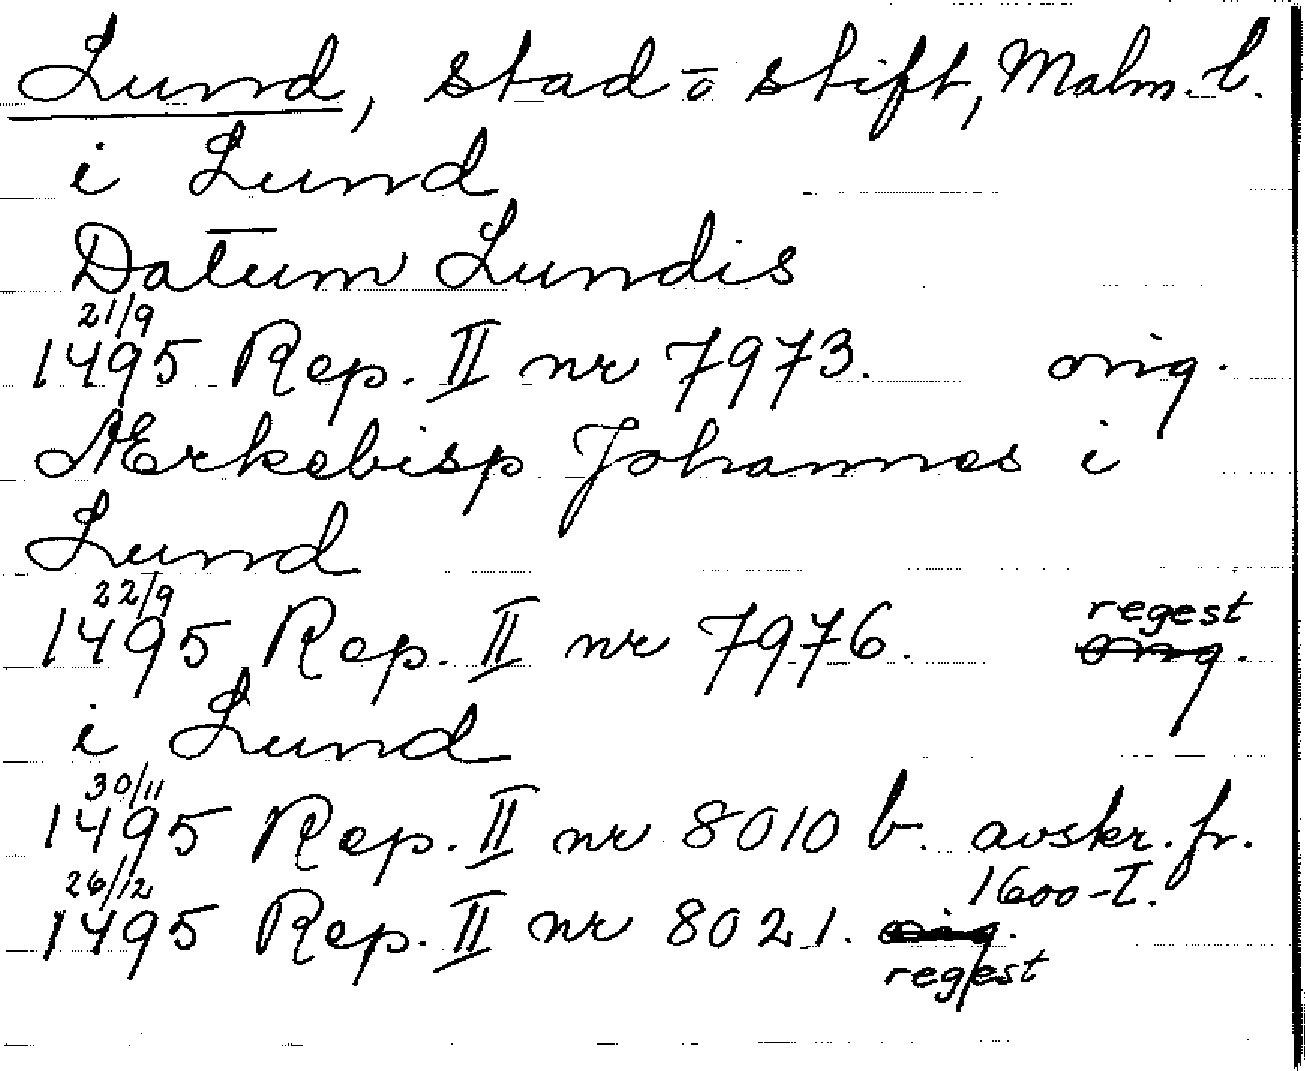 Lund, stad o stift, Malm. l.
i Lund
Datum Lundis
21/9
1495 Rep. II nr 7973. orig.
Ærkebisp Johannes i
Lund
22/9 regest
1495 Rep. II nr 7976. orig.
i Lund
30/11
1495 Rep. II nr 8010 b. avskr. fr.
26/12 1600-T.
1495 Rep. II nr 8021. orig.
regest